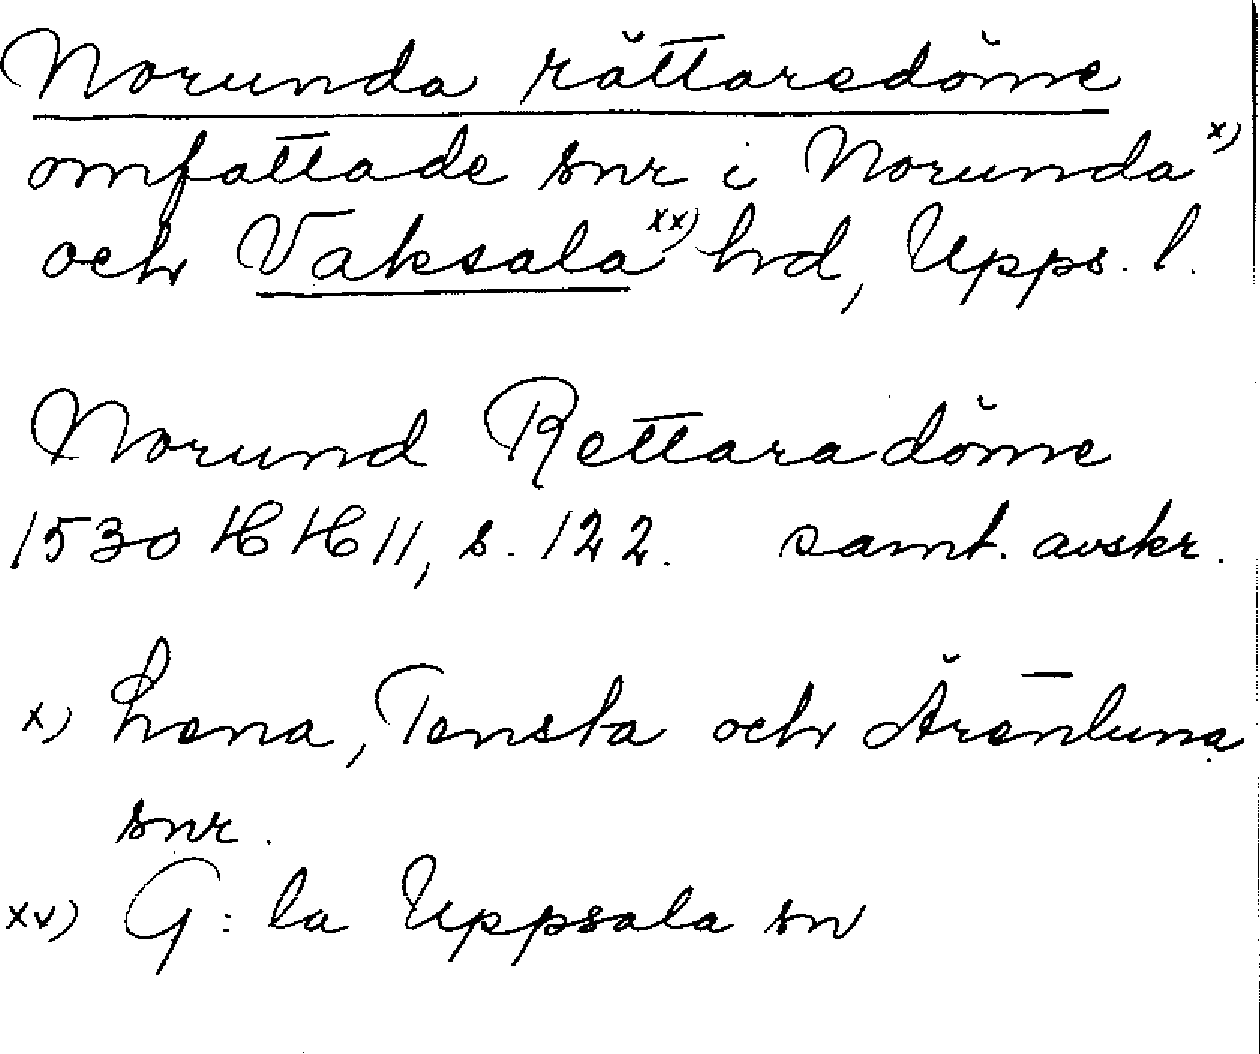 Norunda rättaredöme
omfattade snr i Norunda x)
och Vaksala xx) hd, Upps. l.
Norund Rettaradöme
1530 HH 11, s. 122. samt. avskr.
x) Lena, Tensta och Ärentuna
snr.
xx) G:la Uppsala sn